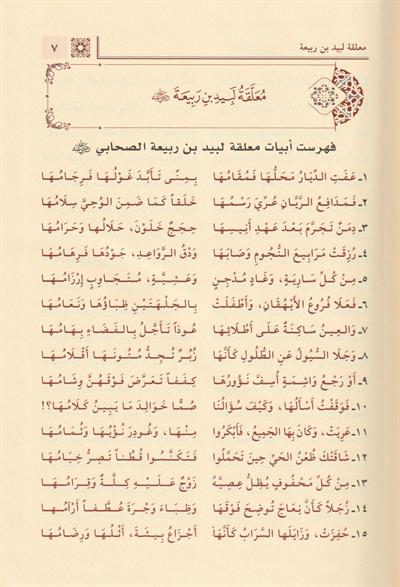 معلقة لبيد بن ربيعة ٧
مُعَلَّقَةُ لَبِيدِ بْنِ رَبِيعَةَ رضي الله عنه
فهرست أبيات معلقة لبيد بن ربيعة الصحابي رضي الله عنه
١ـ عَفَتِ الدِّيَارُ مَحَلُّهَا فَمُقَامُهَا بِمِنًى تَأَبَّدَ غَوْلُهَا فَرِجَامُهَا
٢ـ فَمَدَافِعُ الرَّيَّانِ عُرِّيَ رَسْمُهَا خَلَقاً كَمَا ضَمِنَ الوُحِيَّ سِلَامُهَا
٣ـ دِمَنٌ تَجَرَّمَ بَعْدَ عَهْدِ أَنِيسِهَا حِجَجٌ خَلَوْنَ، حَلَالُهَا وَحَرَامُهَا
٤ـ رُزِقَتْ مَرَابِيعَ النُّجُومِ وَصَابَهَا وَدْقُ الرَّوَاعِدِ، جَوْدُهَا فَرِهَامُهَا
٥ـ مِنْ كُلِّ سَارِيَةٍ، وَغَادٍ مُدْجِنٍ وَعَشِيَّةٍ، مُتَجَاوِبٍ إِرْزَامُهَا
٦ـ فَعَلَا فُرُوعُ الأَيْهُقَانِ، وَأَطْفَلَتْ بِالجَلْهَتَيْنِ ظِبَاؤُهَا وَنَعَامُهَا
٧ـ وَالعِينُ سَاكِنَةٌ عَلَى أَطْلَائِهَا عُوذاً تَأَجَّلُ بِالفَضَاءِ بِهَامُهَا
٨ـ وَجَلَا السُّيُولُ عَنِ الطُّلُولِ كَأَنَّهَا زُبُرٌ تُجِدُّ مُتُونَهَا أَقْلَامُهَا
٩ـ أَوْ رَجْعُ وَاشِمَةٍ أُسِفَّ نَؤُورُهَا كِفَفاً تَعَرَّضَ فَوْقَهُنَّ وِشَامُهَا
١٠ـ فَوَقَفْتُ أَسْأَلُهَا، وَكَيْفَ سُؤَالُنَا صُمًّا خَوَالِدَ مَا يَبِينُ كَلَامُهَا؟!
١١ـ عَرِيَتْ، وَكَانَ بِهَا الجَمِيعُ، فَأَبْكَرُوا مِنْهَا، وَغُودِرَ نُؤْيُهَا وَثُمَامُهَا
١٢ـ شَاقَتْكَ ظُعْنُ الحَيِّ حِينَ تَحَمَّلُوا فَتَكَنَّسُوا قُطْناً تَصِرُّ خِيَامُهَا
١٣ـ مِنْ كُلِّ مَحْفُوفٍ يُظِلُّ عِصِيَّهُ زَوْجٌ عَلَيْهِ كِلَّةٌ وَقِرَامُهَا
١٤ـ زُجَلاً كَأَنَّ نِعَاجَ تُوضِحَ فَوْقَهَا وَظِبَاءَ وَجْرَةَ عُطَّفاً أَرْآمُهَا
١٥ـ حُفِزَتْ، وَزَايَلَهَا السَّرَابُ كَأَنَّهَا أَجْزَاعُ بِيشَةَ، أَثْلُهَا وَرِضَامُهَا